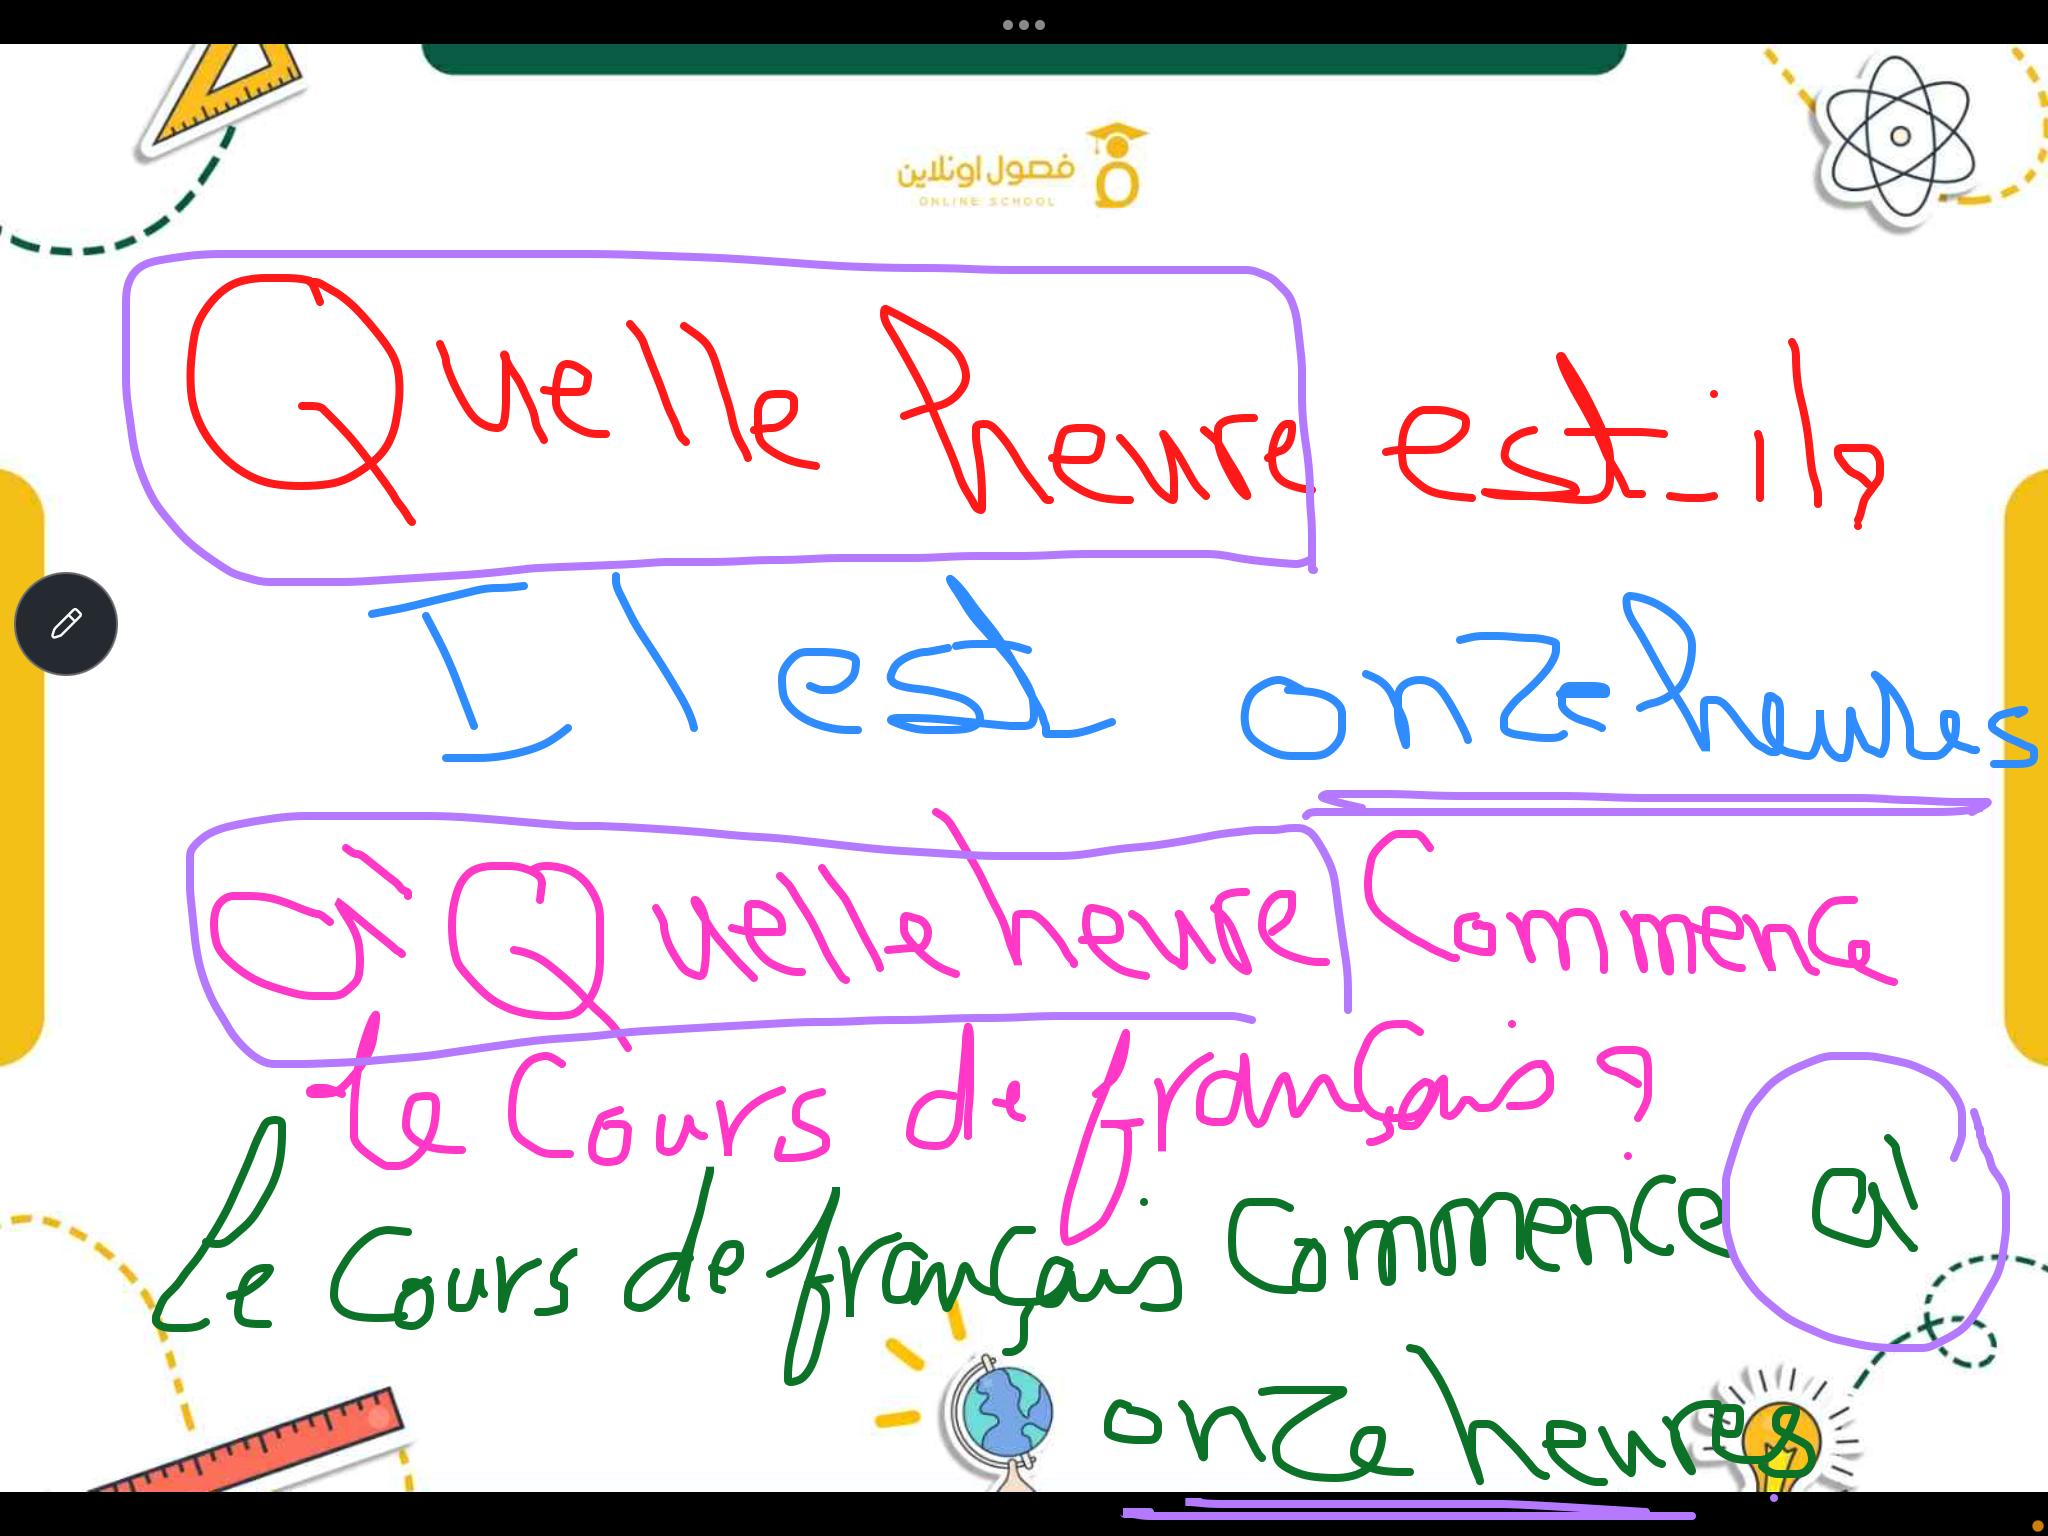 فصول اونلاين
ONLINE SCHOOL
Quelle heure est-il?
Il est onze heures
à Quelle heure Commence
le Cours de français?
Le Cours de français Commence à
onze heures